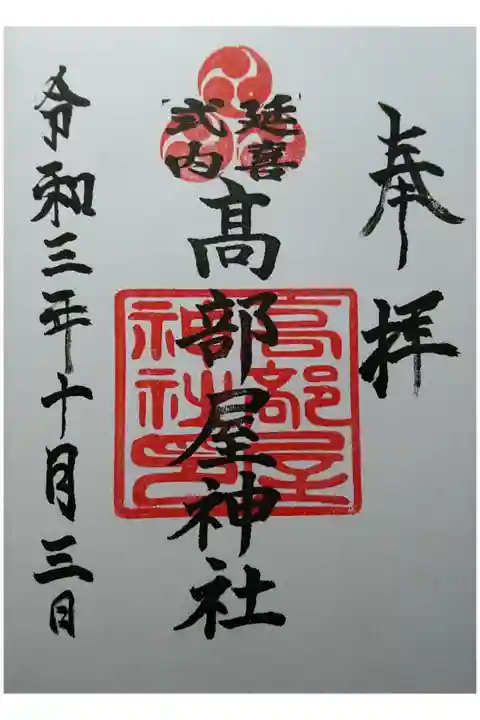 奉拝
延喜
式内
髙部屋神社
高部屋
神社印
令和三年十月三日